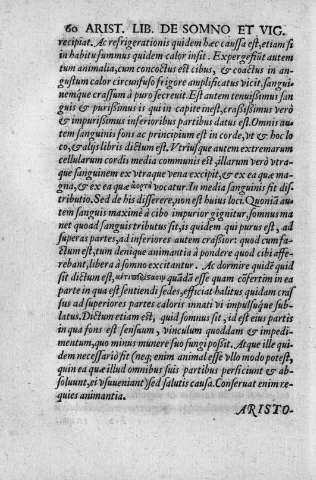 60 ARIST. LIB. DE SOMNO ET VIG.
recipiat. Ac refrigerationis quidem hæc caussa est, etiam si
in habitu summus quidem calor insit. Expergefiūt autem
tum animalia, cum concoctus est cibus, & coactus in an-
gustum calor circumfuso frigore amplificatus vicit, sangui-
nemque crassum à puro secreuit. Est autem tenuissimus san
guis & purissimus is qui in capite inest, crassissimus verò
& impurissimus inferioribus partibus datus est. Omnis au
tem sanguinis fons ac principium est in corde, vt & hoc lo
co, & alijs libris dictum est. Vtriusque autem extremarum
cellularum cordis media communis est, illarum verò vtra-
que sanguinem ex vtraque vena excipit, & ex ea quæ ma-
gna, & ex ea quæ ἀορτὴ vocatur. In media sanguinis fit dis-
tributio. Sed de his disserere, non est huius loci. Quoniā au-
tem sanguis maximè à cibo impurior gignitur, somnus ma
net quoad sanguis tributus sit, is quidem qui purus est, ad
superas partes, ad inferiores autem crassior: quod cum fa-
ctum est, tum denique animantia à pondere quod cibi affe-
rebant, libera à somno excitantur. Ac dormire quidē quid
sit dictum est, quādā esse quam cōfertim in ea
parte in qua est sentiendi sedes, efficiat halitus quidam cras
sus ad superiores partes caloris innati vi impulsúque sub-
latus. Dictum etiam est, quid somnus sit, id est eius partis
in qua fons est sensuum, vinculum quoddam & impedi-
mentum, quo minus munere suo fungi possit. Atque ille qui-
dem necessariò fit (neq; enim animal esse vllo modo potest,
quin ea quæ illud omnibus suis partibus perficiunt & ab-
soluunt, ei vsuueniant) sed salutis causa. Conseruat enim re-
quies animantia.
ARISTO-